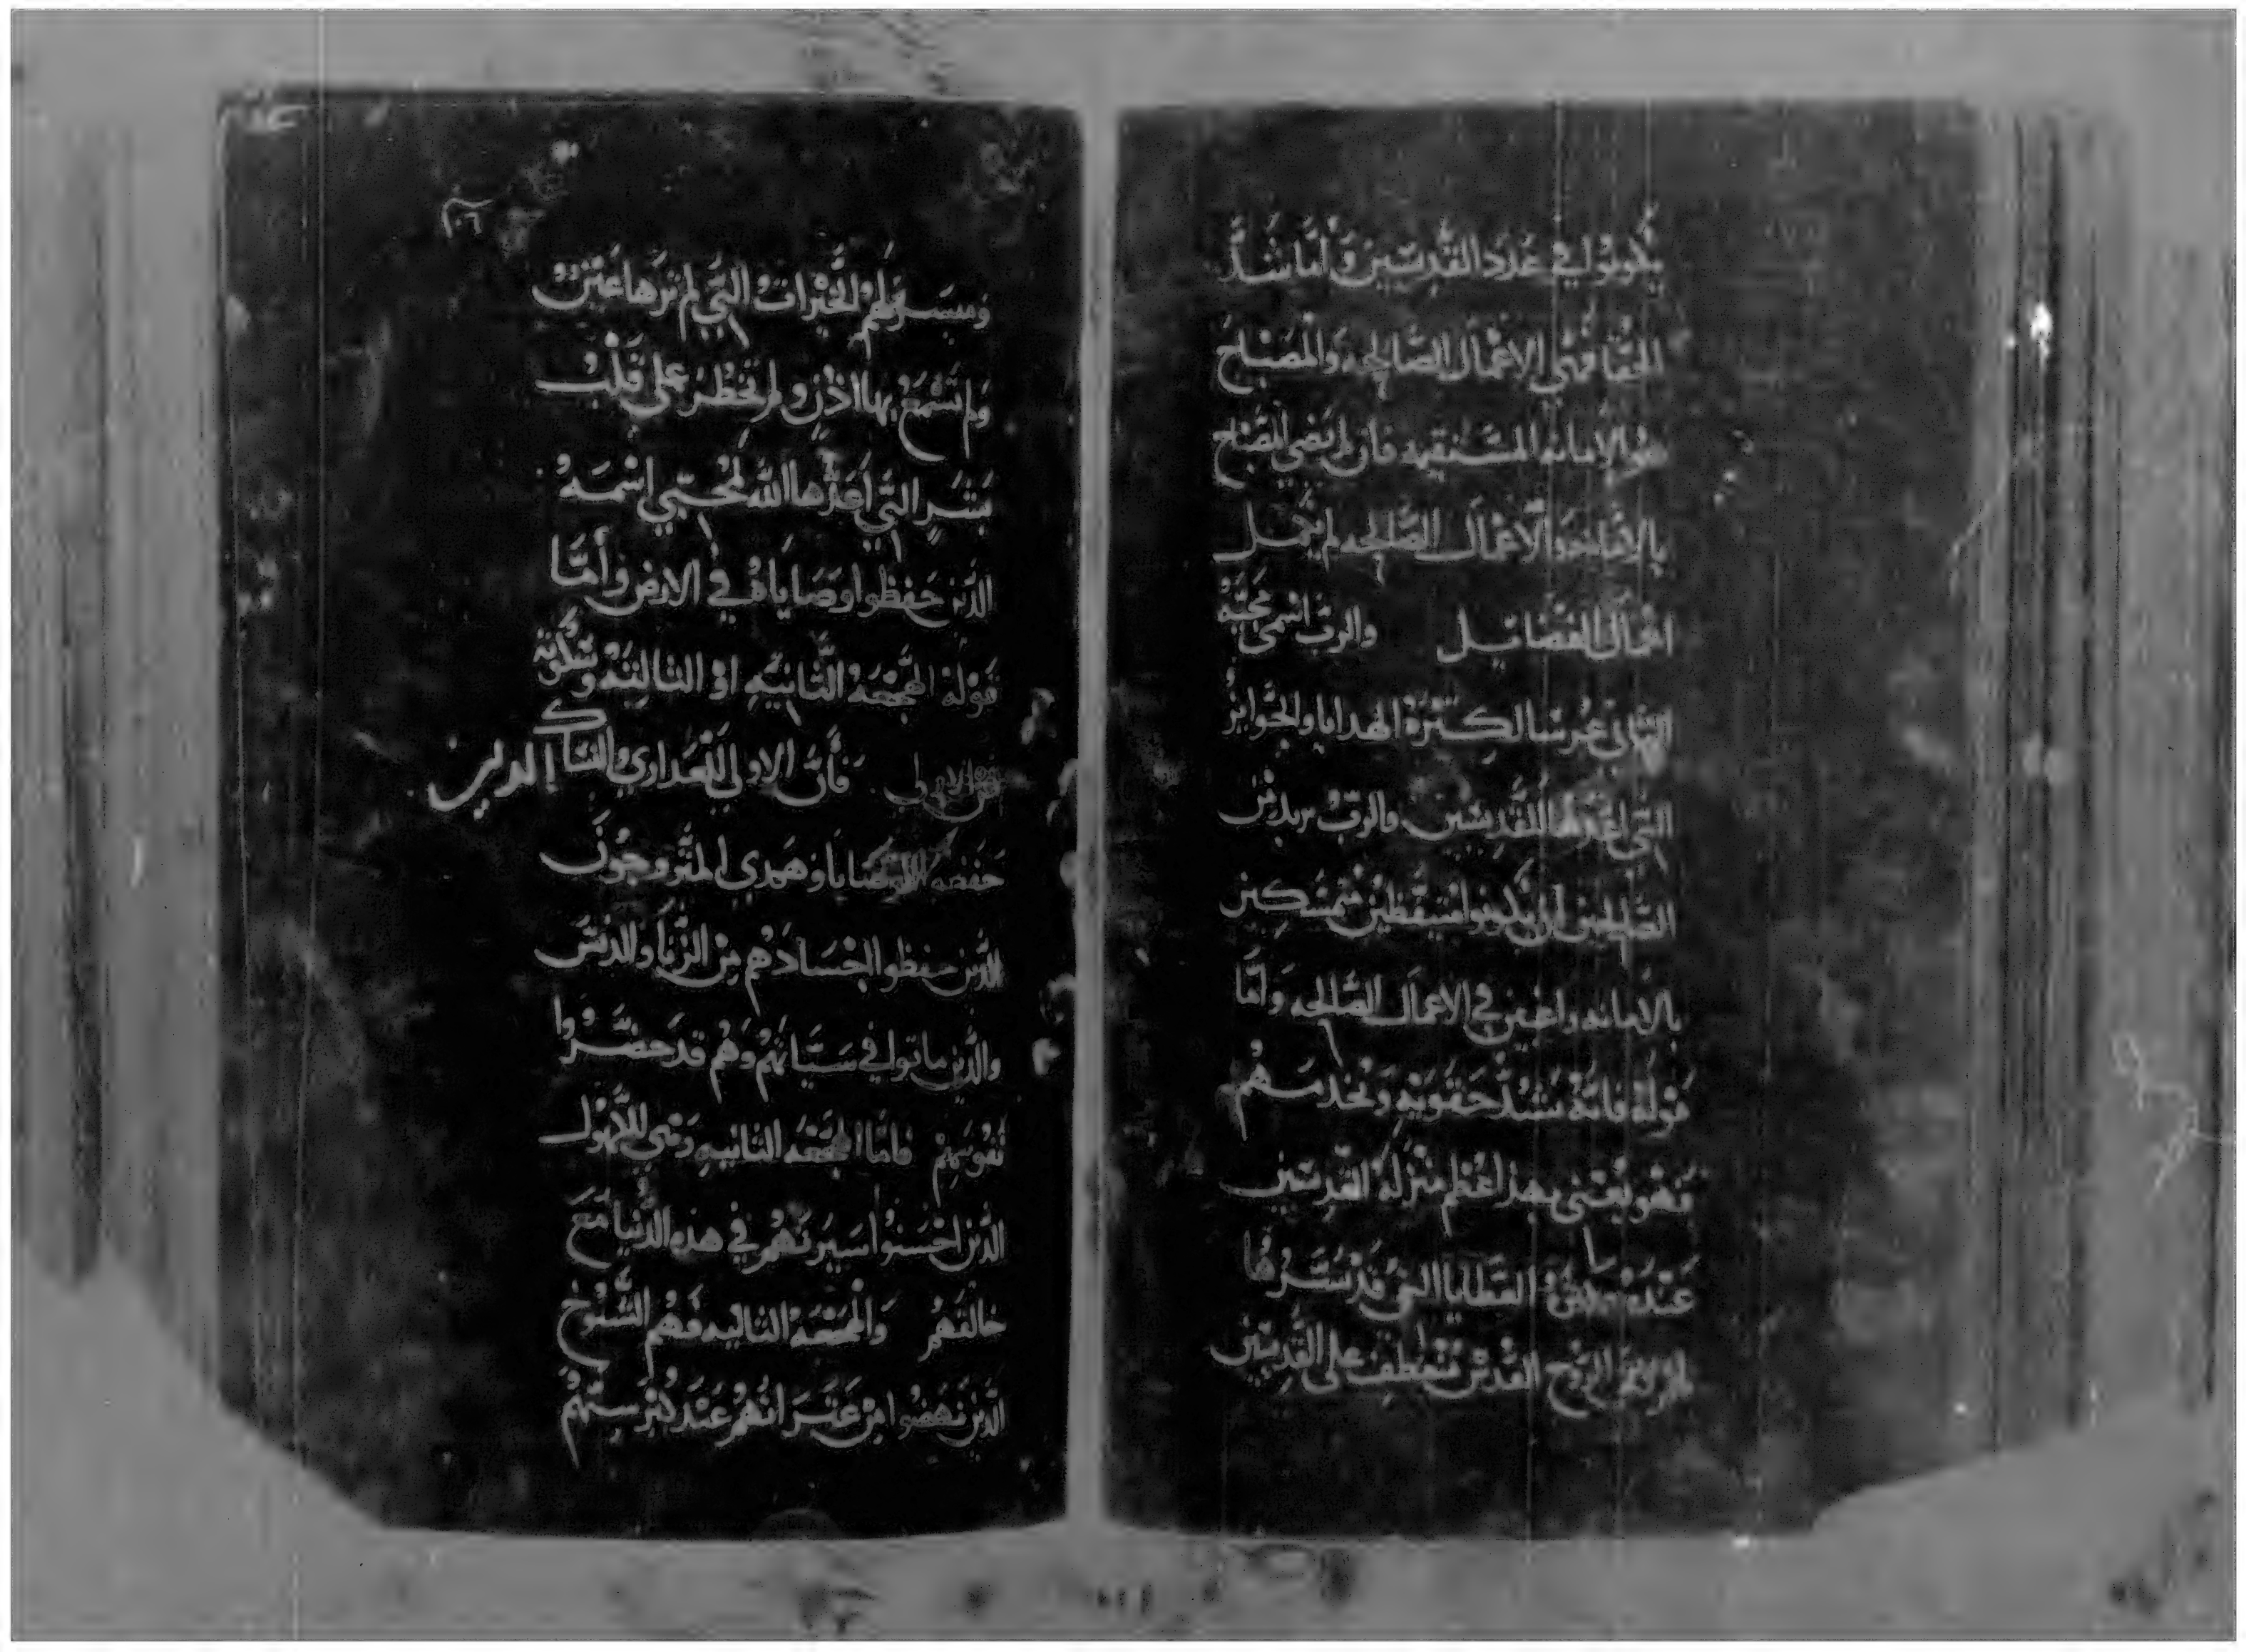 يكونوا في عدد القديسين وأما شد
الحقا فهي الاعمال الصالحه والمصباح
هو الامانه المستقيمه فان لم يضي المصباح
بالامانه والاعمال الصالحه لم يكمل
اعمال الفضايل والرب اسمى مجيه
الثاني عرسا لكثرة الهدايا والجوايز
التي اعدها للقديسين والرب يريد من
الصالحين ان يكونوا مستيقظين متمسكين
بالامانه راغبين في الاعمال الصالحه وأما
قوله فانه يشد حقويه ويخدمهم
فهو يعني بهذا عظم منزلة القديسين
عنده العطايا التي قد سترها
لهم لان الروح القدس تنعطف على القديسين
٢٠٦
لهم الخيرات التي لم ترها عين
ولم تسمع بها اذن ولم تخطر على قلب
بشر التي أعدها الله لمحبي اسمه
الذين حفظوا وصاياه في الارض وأما
قوله الهجعه الثانيه او الثالثه وسكوته
عن الاولى فأن الاولى للعداري والنساك الدين
حفضوا الوصايا وهمدي المتزوجون
الذين حفظوا اجسادهم من الزنا والدنس
والذين ماتوا في سيّاتهم وهم قد خسروا
نفوسهم فاما الهجعه الثانيه وهي للكهول
الذين احسنوا سيرتهم في هذه الدنيا مع
خالقهم والهجعه الثالثه فهم الشيوخ
الذين نهضوا من عثراتهم عند كبر سنهم